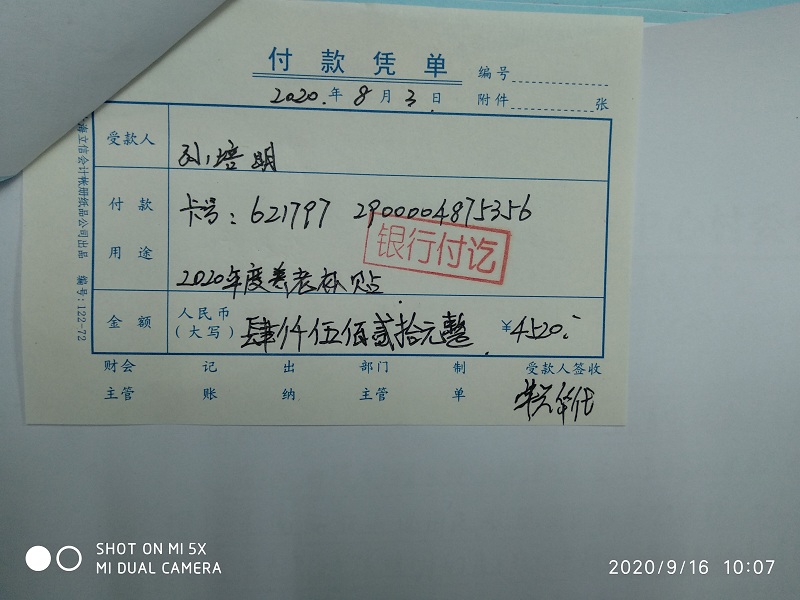 付款凭单
编号
2020.年8月3日
附件 张
受款人 孙培明
付款用途 卡号:621797 2900004875356
银行付讫
2020年度养老补贴
金额 人民币(大写) 肆仟伍佰贰拾元整 ¥4520.
财会主管 记账 出纳 部门主管 制单 受款人签收
海立信会计帐册纸品公司出品 编号:122-72
SHOT ON MI 5X
MI DUAL CAMERA
2020/9/16 10:07